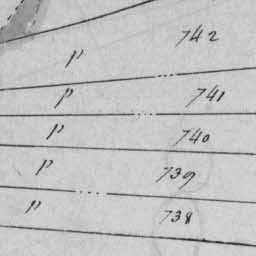 p 742
p 741
p 740
p 739
p 738